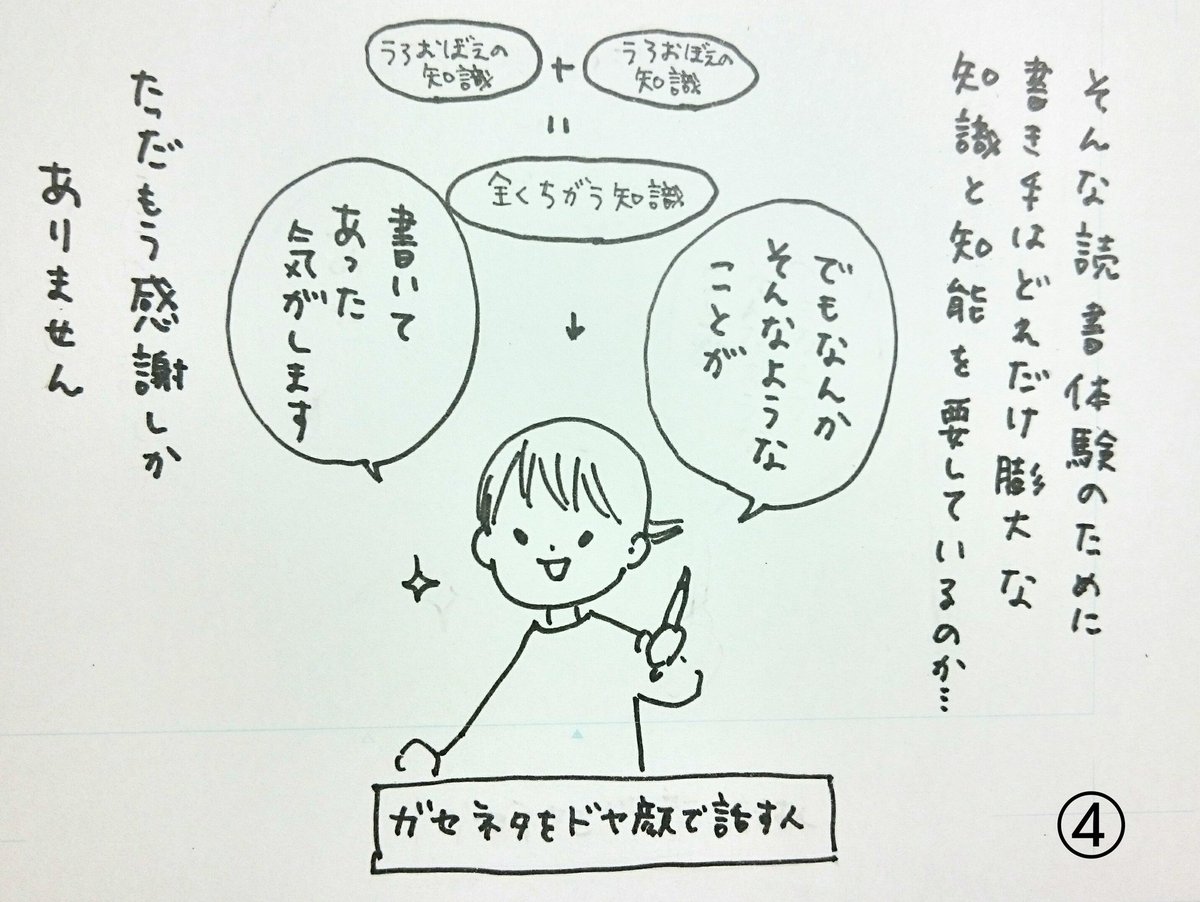 そんな読書体験のために
書き手はどれだけ膨大な
知識と知能を要しているのか…
うろおぼえの
知識
+
うろおぼえの
知識
=
全くちがう知識
↓
でもなんか
そんなような
ことが
書いて
あった
気がします
ガセネタをドヤ顔で話す人
ただもう感謝しか
ありません
④